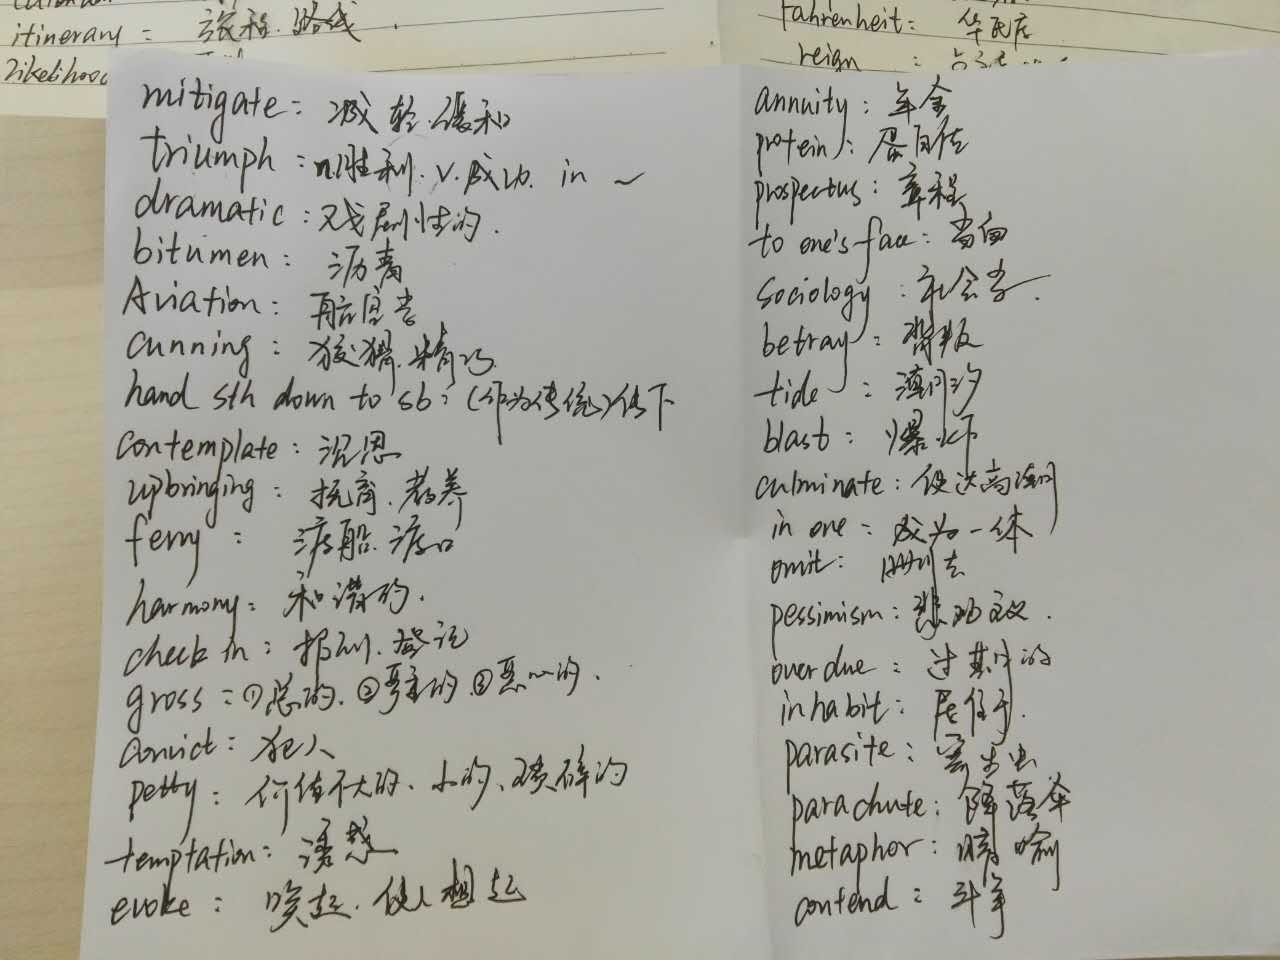 itinerary = 旅程.路线.
likelihood
fahrenheit: 华氏度
reign :
mitigate: 减轻.缓和
triumph: n.胜利. v.成功. in ~
dramatic: 戏剧性的.
bitumen: 沥青
Aviation: 航空学
cunning: 狡猾.精巧
hand sth down to sb: (作为传统)传下
contemplate: 沉思
upbringing: 抚育.教养
ferry : 渡船.渡口
harmony: 和谐的.
check in: 报到.登记
gross: ①总的.②严重的.③恶心的.
convict: 犯人
petty: 价值不大的、小的、琐碎的
temptation: 诱惑
evoke: 唤起.使人想起
annuity: 年金
protein: 蛋白质
prospectus: 章程
to one's face: 当面
sociology: 社会学.
betray: 背叛
tide : 潮汐
blast: 爆炸
culminate: 使达高潮
in one: 成为一体
omit: 删去
pessimism: 悲观主义.
overdue: 过期的
inhabit: 居住于.
parasite: 寄生虫
parachute: 降落伞
metaphor: 暗喻
contend: 斗争